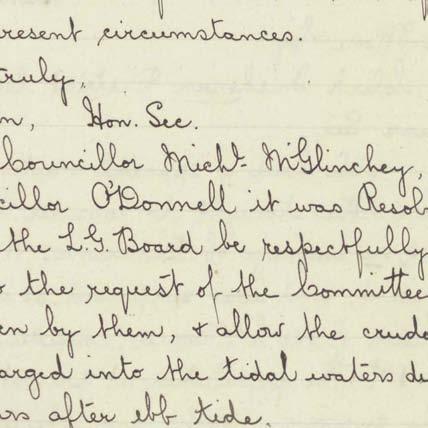 resent circumstances.
truly,
n, Hon. Sec.
Councillor Michl. McGlinchey,
cillor O'Donnell it was Resol
the L.G. Board be respectfully
the request of the Committee
en by them, & allow the crud
arged into the tidal waters du
rs after ebb tide.